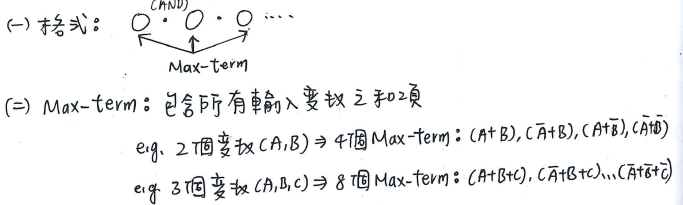 (AND)
(一) 格式: ○ · ○ · ○ ....
Max-term
(二) Max-term: 包含所有輸入變數之和項
e.g. 2個變數(A,B) ⇒ 4個Max-term: (A+B), (A̅+B), (A+B̅), (A̅+B̅)
e.g. 3個變數(A,B,C) ⇒ 8個Max-term: (A+B+C), (A̅+B+C)...(A̅+B̅+C̅)